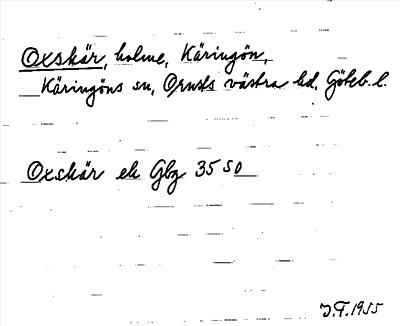 Oxskär, holme, Käringön,
Käringöns sn, Orusts västra hd, Göteb. l.
Oxskär ek Gbg 35 SO
J.F. 1955